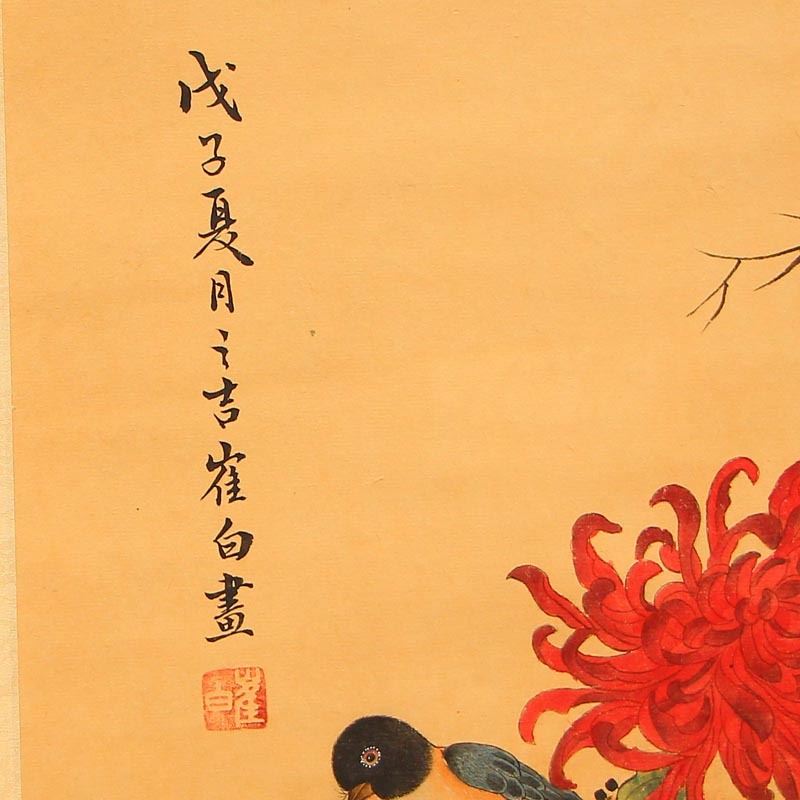 戊子夏月之吉崔白畫
崔白